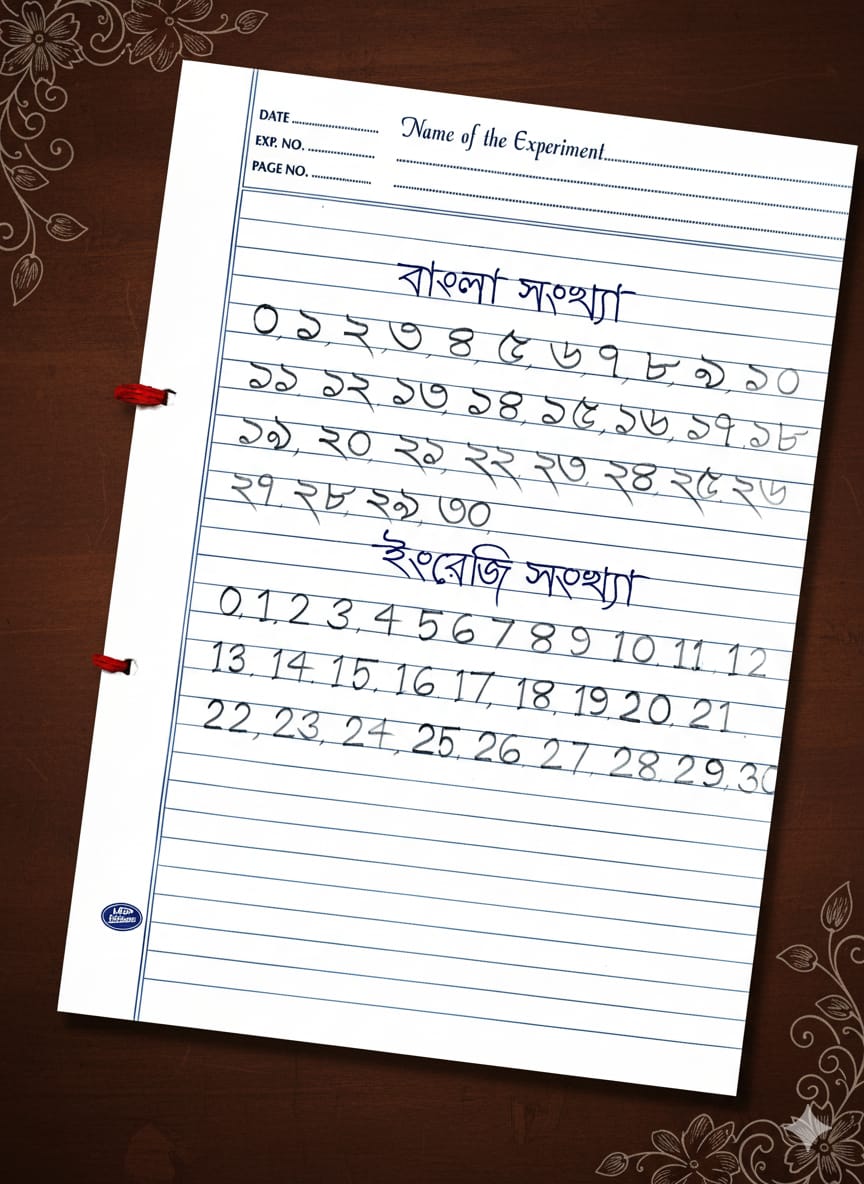 DATE
Name of the Experiment
EXP. NO.
PAGE NO.
বাংলা সংখ্যা
০, ১, ২, ৩, ৪, ৫, ৬, ৭, ৮, ৯, ১০
১১, ১২, ১৩, ১৪, ১৫, ১৬, ১৭, ১৮
১৯, ২০, ২১, ২২, ২৩, ২৪, ২৫, ২৬
২৭, ২৮, ২৯, ৩০
ইংরেজি সংখ্যা
0, 1, 2, 3, 4, 5, 6, 7, 8, 9, 10, 11, 12
13, 14, 15, 16, 17, 18, 19, 20, 21
22, 23, 24, 25, 26, 27, 28, 29, 30